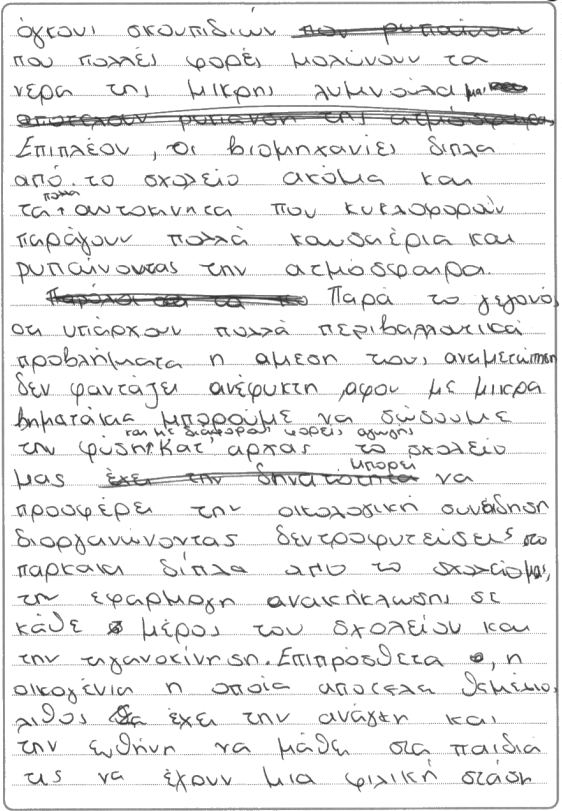 όγκους σκουπιδιών που ρυπαίνουν
που πολλές φορές μολύνουν τα
νερα της μικρης λυμνούλα μας
αποτελουν ρυπανση της ατμόσφαιρα,
Επιπλέον, οι βιομηχανίες διπλα
από το σχολείο ακόμα και
τα πολλα αυτοκινητα που κυκλοφορούν
παράγουν πολλά καυσαέρια και
ρυπαίνοντας την ατμοσφαιρα.
Παρά το γεγονός
οτι υπάρχουν πολλά περιβαλλοντικά
προβλήματα η αμεση τους αναμετώπιση
δεν φαντάζει ανέφικτη, αφου με μικρα
βηματάκια μπορούμε να σώσουμε
και με διαφορους φορείς αγωγης
την φύση. Κατ' αρχας το σχολείο
μας έχει την δηνατότητα μπορει να
προσφέρει την οικολογική συνείδηση
διοργανώνοντας δεντροφυτεύσεις στο
παρκακι δίπλα απο το σχολείο μας,
την εφαρμογη ανακήκλωσης σε
κάθε μέρος του σχολείου και
την τηγανοκίνηση. Επιπρόσθετα, η
οικογένια η οποία αποτελα θεμέλιο,
λιθος έχει την ανάγκη και
την ευθήνη να μάθει στα παιδιά
της να έχουν μια φιλική στάση